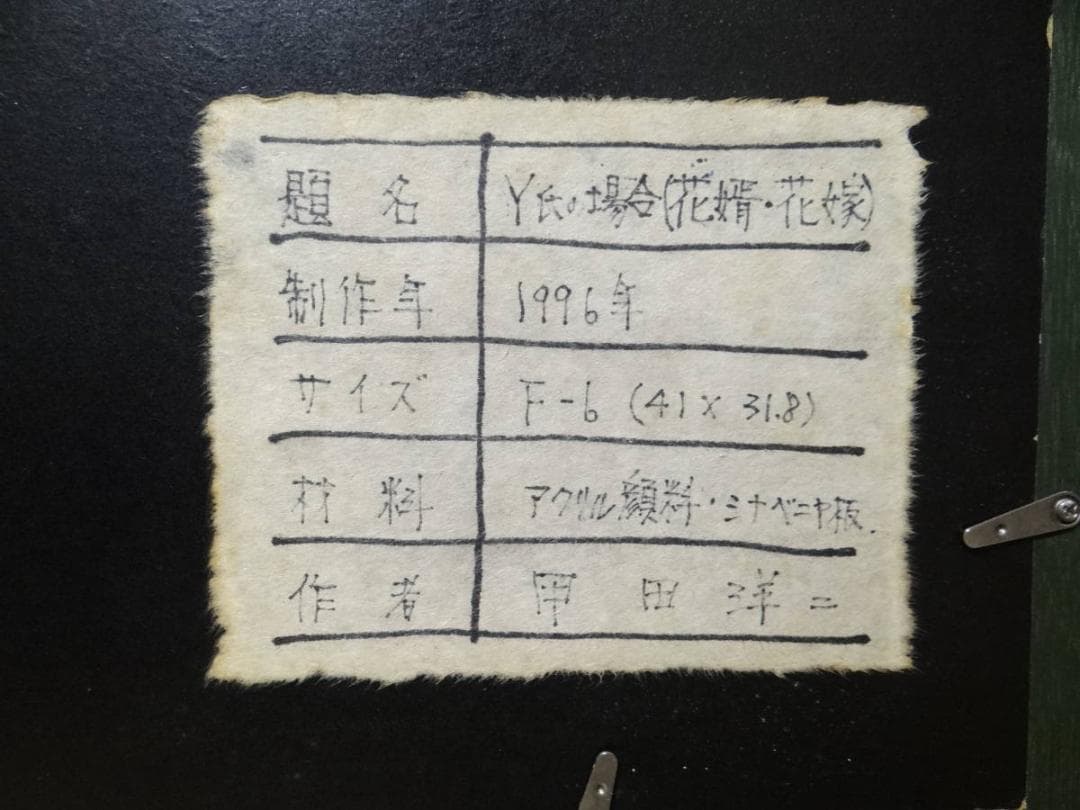 題名 Y氏の場合(花婿・花嫁)
制作年 1996年
サイズ F-6 (41×31.8)
材料 アクリル顔料・ミナベニヤ板.
作者 甲田洋二